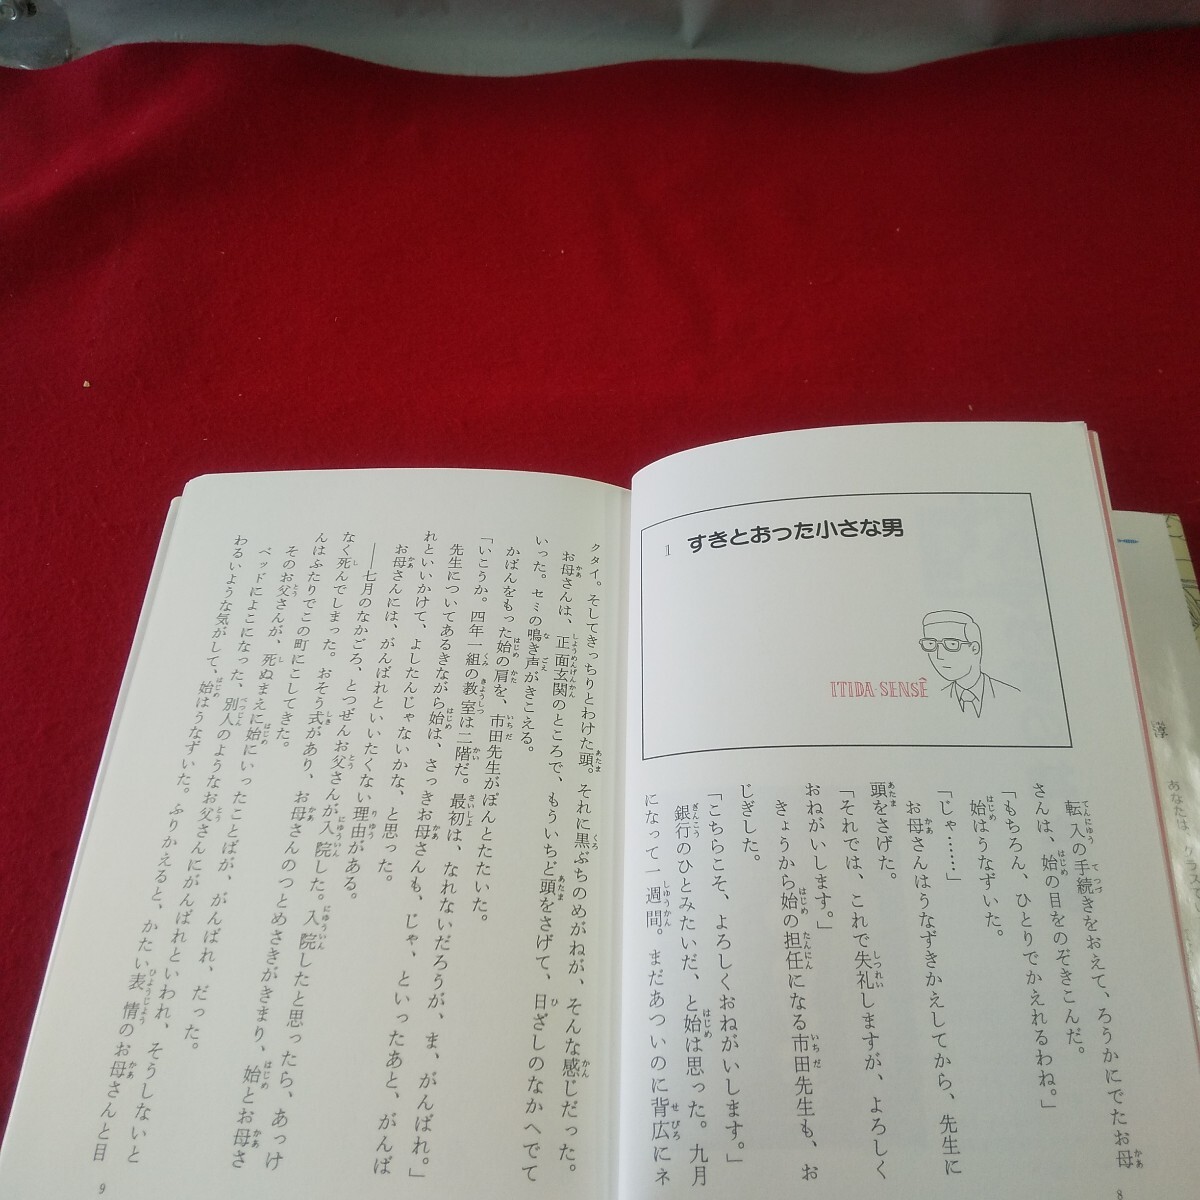 1 すきとおった小さな男
ITIDA·SENSÊ
転入の手続きをおえて、ろうかにでたお母
さんは、始の目をのぞきこんだ。
「もちろん、ひとりでかえれるわね。」
始はうなずいた。
「じゃ……」
お母さんはうなずきかえしてから、先生に
頭をさげた。
「それでは、これで失礼しますが、よろしく
おねがいします。」
きょうから始の担任になる市田先生も、お
じぎした。
「こちらこそ、よろしくおねがいします。」
銀行のひとみたいだ、と始は思った。九月
になって一週間。まだあついのに背広にネ
8
クタイ。そしてきっちりとわけた頭。それに黒ぶちのめがねが、そんな感じだった。
お母さんは、正面玄関のところで、もういちど頭をさげて、日ざしのなかへでて
いった。セミの鳴き声がきこえる。
かばんをもった始の肩を、市田先生がぽんとたたいた。
「いこうか。四年一組の教室は二階だ。最初は、なれないだろうが、ま、がんばれ。」
先生についてあるきながら始は、さっきお母さんも、じゃ、といったあと、がんば
れといいかけて、よしたんじゃないかな、と思った。
お母さんには、がんばれといいたくない理由がある。
――七月のなかごろ、とつぜんお父さんが入院した。入院したと思ったら、あっけ
なく死んでしまった。おそう式があり、お母さんのつとめさきがきまり、始とお母さ
んはふたりでこの町にこしてきた。
そのお父さんが、死ぬまえに始にいったことばが、がんばれ、だった。
ベッドによこになった、別人のようなお父さんにがんばれといわれ、そうしないと
わるいような気がして、始はうなずいた。ふりかえると、かたい表情のお母さんと目
9
あなたは、クラスで